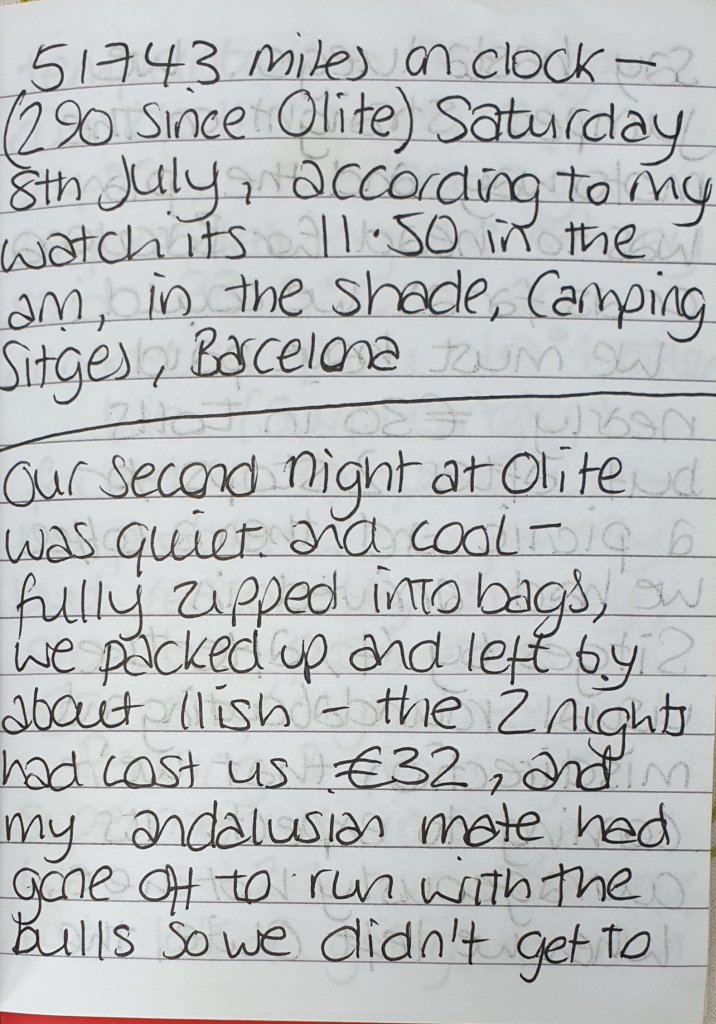 51743 miles on clock –
(290 since Olite) Saturday
8th July, according to my
watch its 11.50 in the
am, in the shade, Camping
Sitges, Barcelona
Our second night at Olite
was quiet and cool –
fully zipped into bags,
we packed up and left by
about 11ish – the 2 nights
had cost us €32, and
my andalusian mate had
gone off to run with the
bulls so we didn't get to